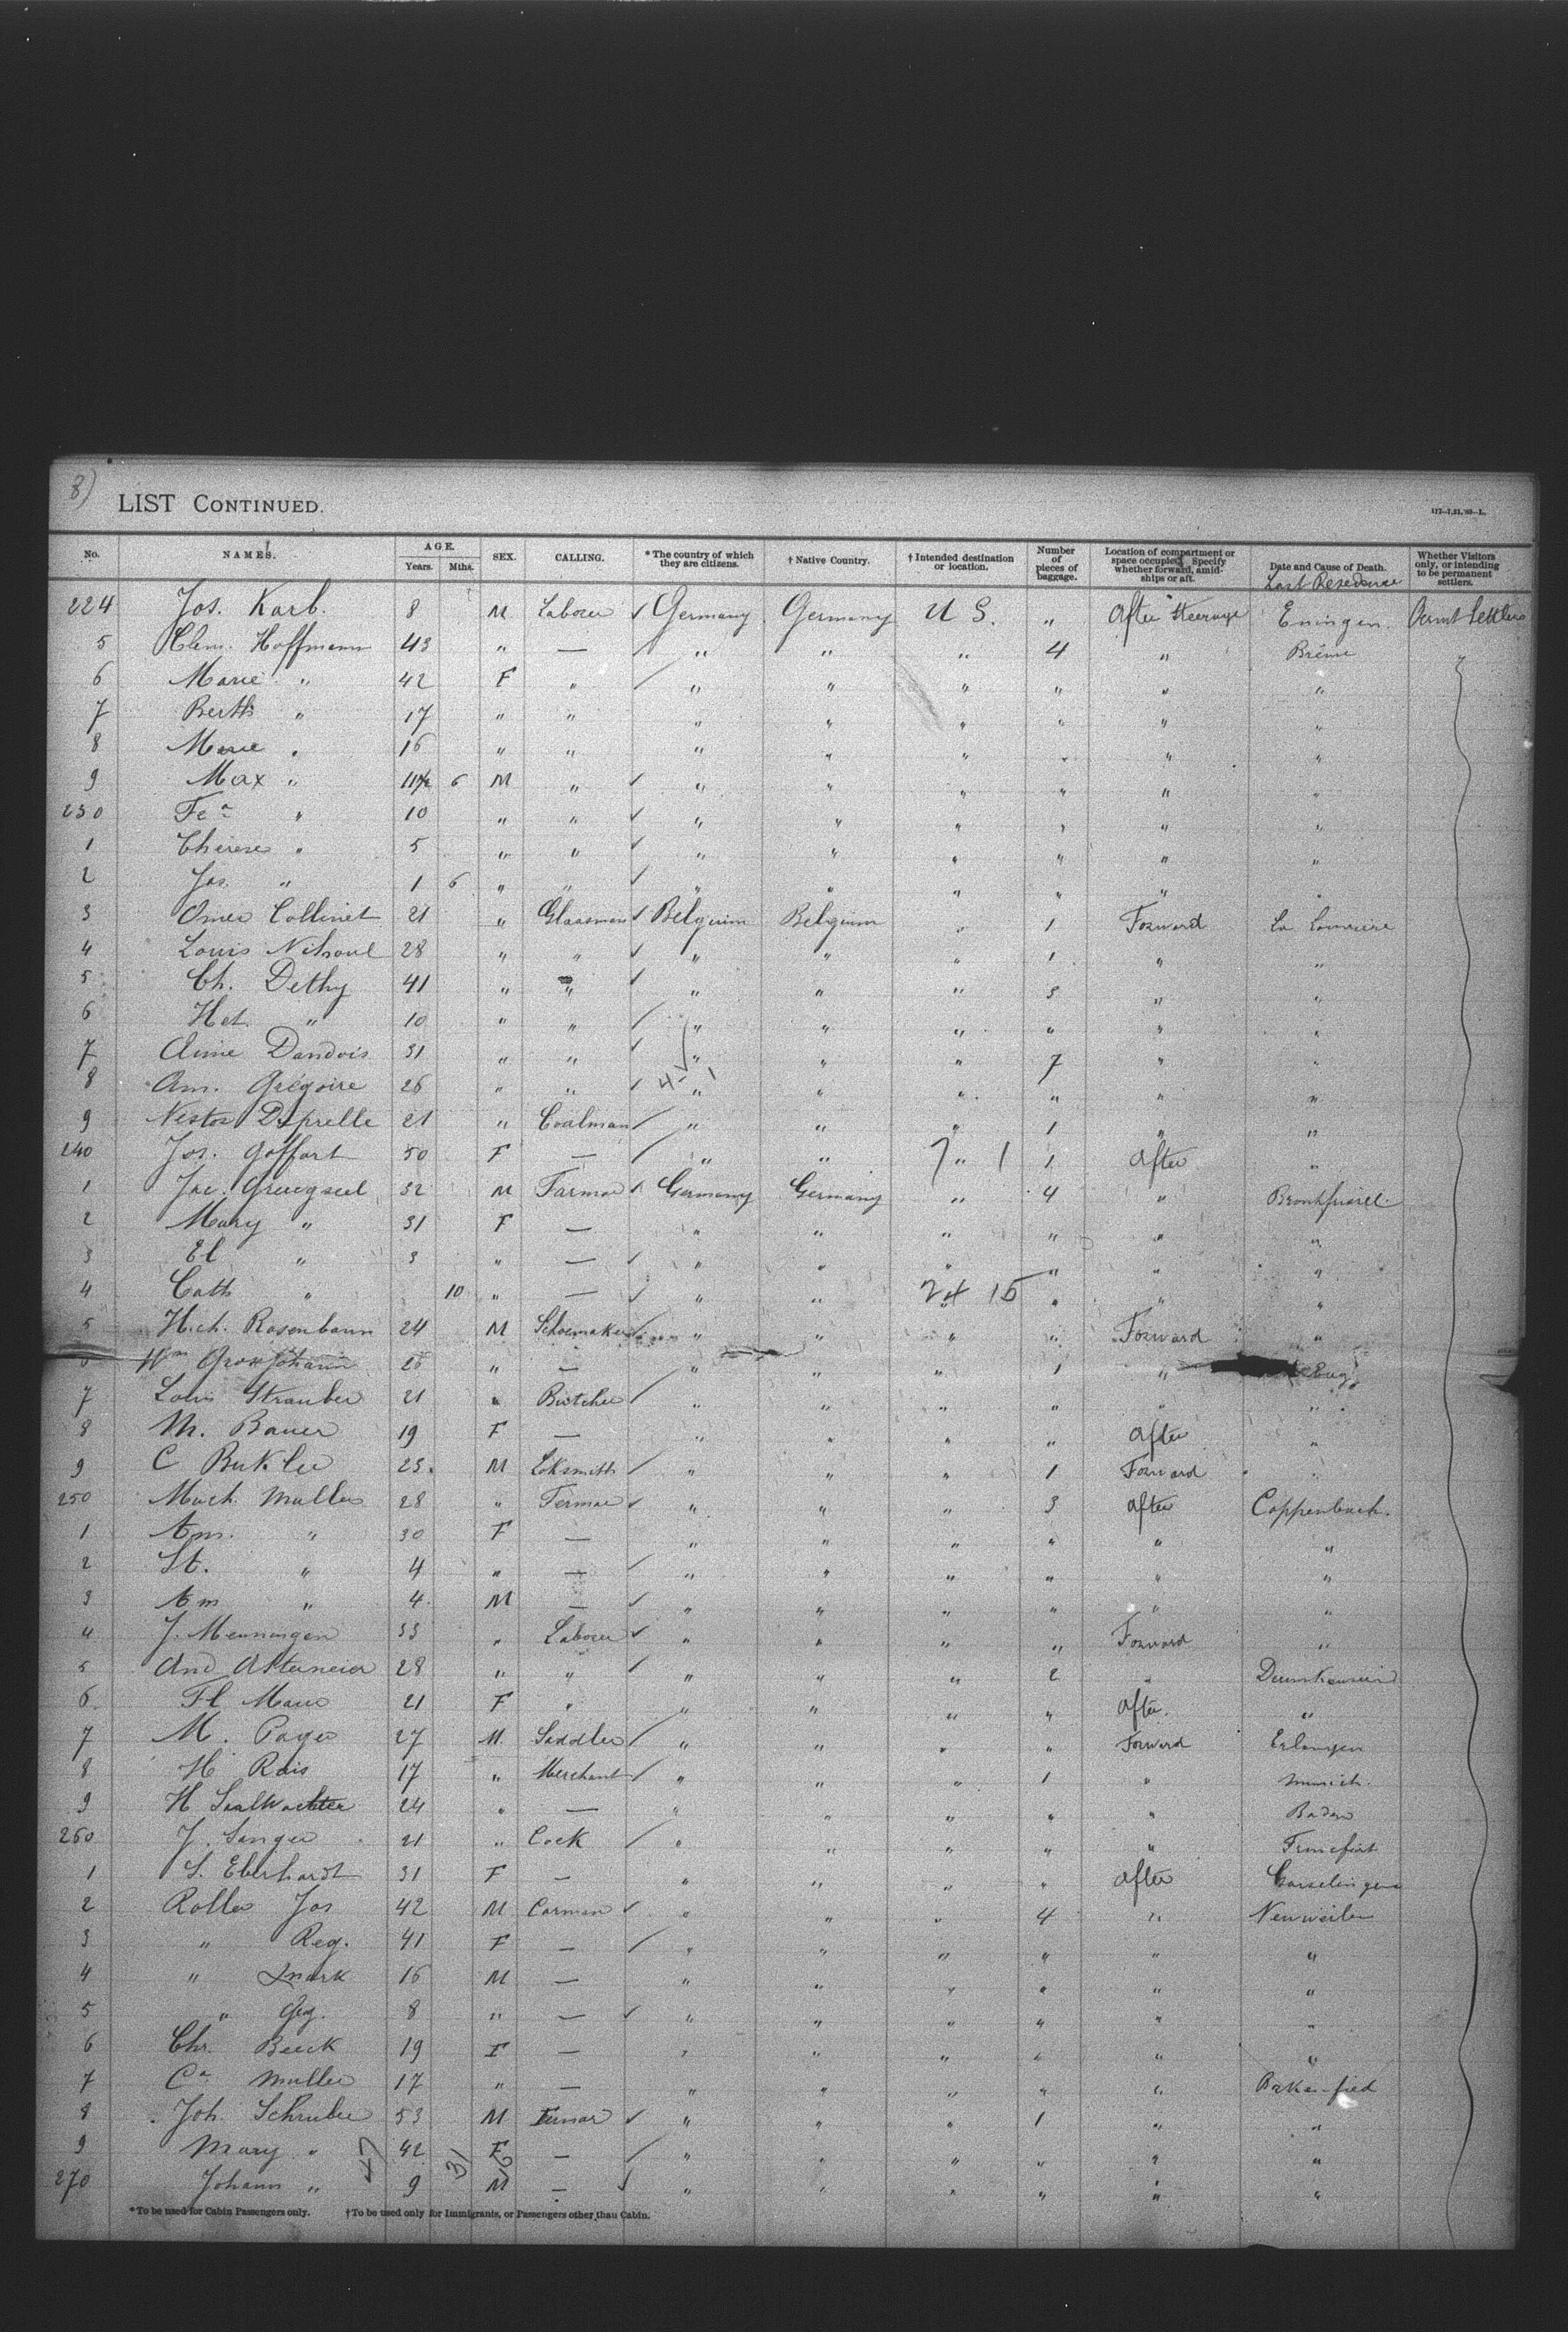 8)
LIST CONTINUED.
117-7,21,'89-L.
No. NAMES. AGE. Years. Mths. SEX. CALLING. * The country of which they are citizens. † Native Country. † Intended destination or location. Number of pieces of baggage. Location of compartment or space occupied. Specify whether forward, amidships or aft. Date and Cause of Death. Last Residence Whether Visitors only, or intending to be permanent settlers.
224 Jos. Karb. 8 M Laborer ✓ Germany Germany U S. " After Steerage Eningen.
5 Clem. Hoffmann 43 " — " " " 4 " Brême
6 Marie " 42 F " " " " " " "
7 Berth " 17 " " " " " " " "
8 Marie " 16 " " " " " " " "
9 Max " 11 6 M " ✓ " " " " " "
230 Fe " 10 " " ✓ " " " " " "
1 Therese " 5 " " ✓ " " " " " "
2 Jos. " 1 6 " " ✓ " " " " " "
3 Omer Collinet 21 " Glassman ✓ Belguim Belguim " 1 Forward La
4 Louis Nihoul 28 " " ✓ " " " 1 " "
5 Ch. Dethy 41 " " ✓ " " " 3 " "
6 Het. " 10 " " " " " " " "
7 Aime Dandois 31 " " ✓ " " " 7 " "
8 Am. Grégoire 26 " " ✓ " " " " " "
9 Nestor Desprelle 21 " Coalman " " " 1 " "
240 Jos. Goffart 50 F — " " " 1 After "
1 Jac. 32 M Farmer ✓ Germany Germany " 4 "
2 Mary " 31 F — " " " " " "
3 El " 3 " — ✓ " " " " " "
4 Cath " 10 " — ✓ " " 24 15 " " "
5 Hch. Rosenbaum 24 M Schoemaker " " " " Forward "
6 Wm Grossjohann 26 " — " " " 1 "
7 Louis Strauber 21 " Butcher " " " " " "
8 M. Bauer 19 F — " " " " After "
9 C 23. M Loksmith " " " 1 Forward "
250 Mach. Muller 28 " Fermer ✓ " " " 3 After Coppenbach.
1 Am. " 30 F — " " " " " "
2 St. " 4 " — " " " " " "
3 Am " 4 M — ✓ " " " " " "
4 J. Menningen 33 " Laborer ✓ " " " " Forward "
5 And 28 " " ✓ " " " 2 "
6 Fl Maus 21 F " " " " " After. "
7 M. 27 M. Saddler " " " " Forward Erlangen
8 H Rais 17 " Merchant " " " 1 " Munich.
9 H Saalwachter 24 " — " " " " " Baden
260 J. Sanger 21 " Cock " " " " " Francfort
1 S. Eberhardt 31 F — " " " " After
2 Roller Jos 42 M Carman ✓ " " " 4 " Neuweiler
3 " Reg. 41 F — " " " " " "
4 " Mark 16 M — " " " " " "
5 " Gg. 8 " — ✓ " " " " " "
6 Chr. Beeck 19 F — " " " " " "
7 Ca Muller 17 " — " " " " "
8 Joh. Schruber 53 M Fermer ✓ " " " 1 " "
9 Mary " 42 F — " " " " " "
270 Johann " 9 M — ✓ " " " " " "
47 31 16
*To be used for Cabin Passengers only. †To be used only for Immigrants, or Passengers other than Cabin.